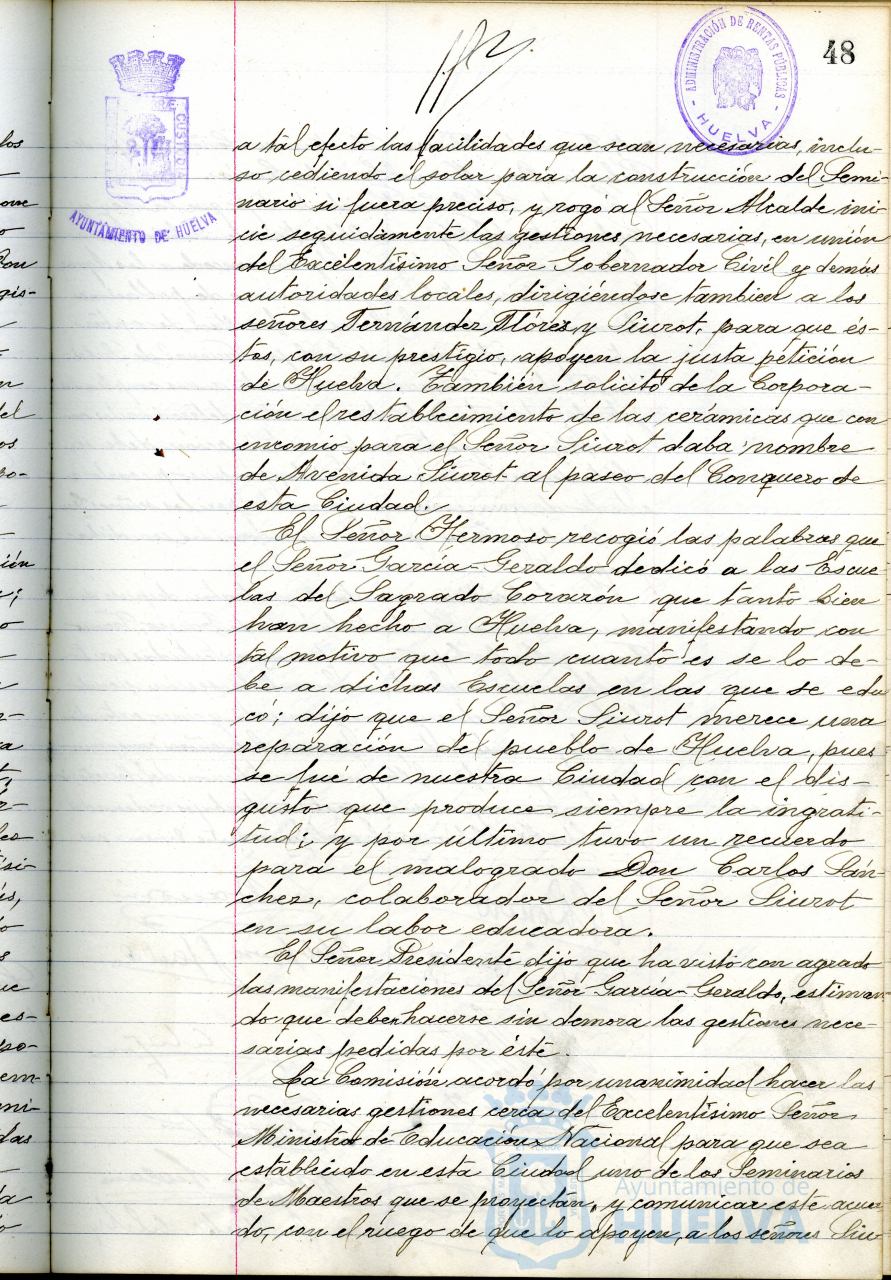 48
ADMINISTRACIÓN DE RENTAS PÚBLICAS
HUELVA
AYUNTAMIENTO DE HUELVA
a tal efecto las facilidades que sean necesarias, inclu-
so cediendo el solar para la construcción del Semi-
nario si fuera preciso, y rogó al Señor Alcalde ini-
cie seguidamente las gestiones necesarias, en unión
del Excelentísimo Señor Gobernador Civil y demás
autoridades locales, dirigiéndose tambien a los
señores Fernández Flórez y Siurot, para que és-
tos, con su prestigio, apoyen la justa petición
de Huelva. También solicitó de la Corpora-
ción el restablecimiento de las cerámicas que con
encomio para el Señor Siurot daba nombre
de Avenida Siurot al paseo del Conquero de
esta Ciudad.
El Señor Hermoso recogió las palabras que
el Señor García-Geraldo dedicó a las Escue
las del Sagrado Corazón que tanto bien
han hecho a Huelva, manifestando con
tal motivo que todo cuanto es se lo de-
be a dichas Escuelas en las que se edu
có; dijo que el Señor Siurot merece una
reparación del pueblo de Huelva, pues
se fué de nuestra Ciudad con el dis-
gusto que produce siempre la ingrati-
tud; y por último tuvo un recuerdo
para el malogrado Don Carlos Sán-
chez, colaborador del Señor Siurot
en su labor educadora.
El Señor Presidente dijo que ha visto con agrado
las manifestaciones del Señor García-Geraldo, estiman
do que deben hacerse sin demora las gestiones nece-
sarias pedidas por éste.
La Comisión acordó por unanimidad hacer las
necesarias gestiones cerca del Excelentísimo Señor
Ministro de Educación Nacional para que sea
establecido en esta Ciudad uno de los Seminarios
de Maestros que se proyectan, y comunicar este acuer
do, con el ruego de que lo apoyen, a los señores Siu-
Ayuntamiento de
HUELVA